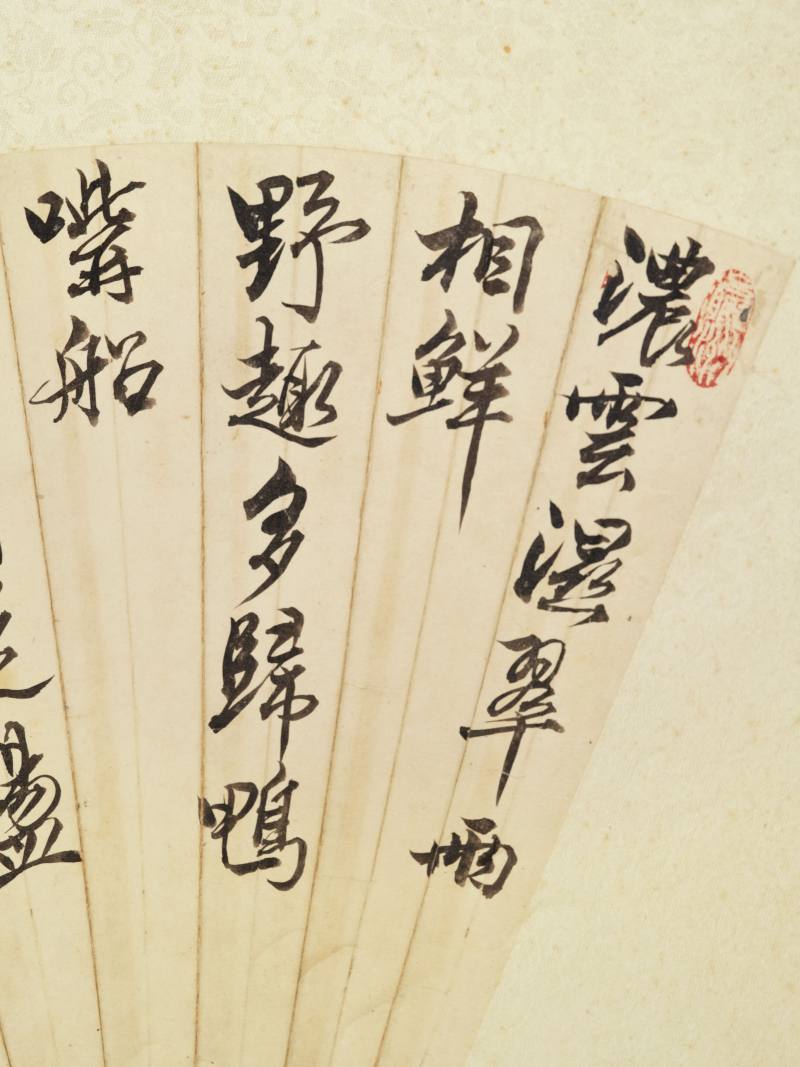 濃雲濕翠兩
相鮮
野趣多歸鴨
船
盪